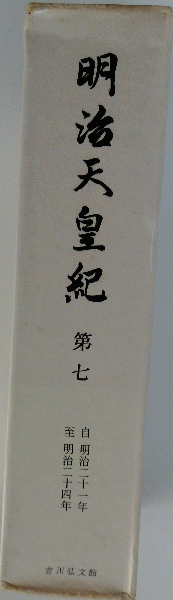 明治天皇紀
第七
自 明治二十一年
至 明治二十四年
吉川弘文館